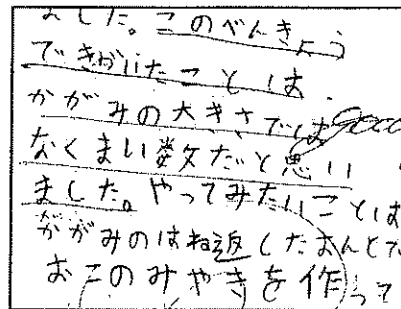 ました。このべんきょう
できがいたことは、
かがみの大きさでは good
なくまい数だと思い
ました。やってみたいことは
かがみのはね返したおんどで
おこのみやきを作って